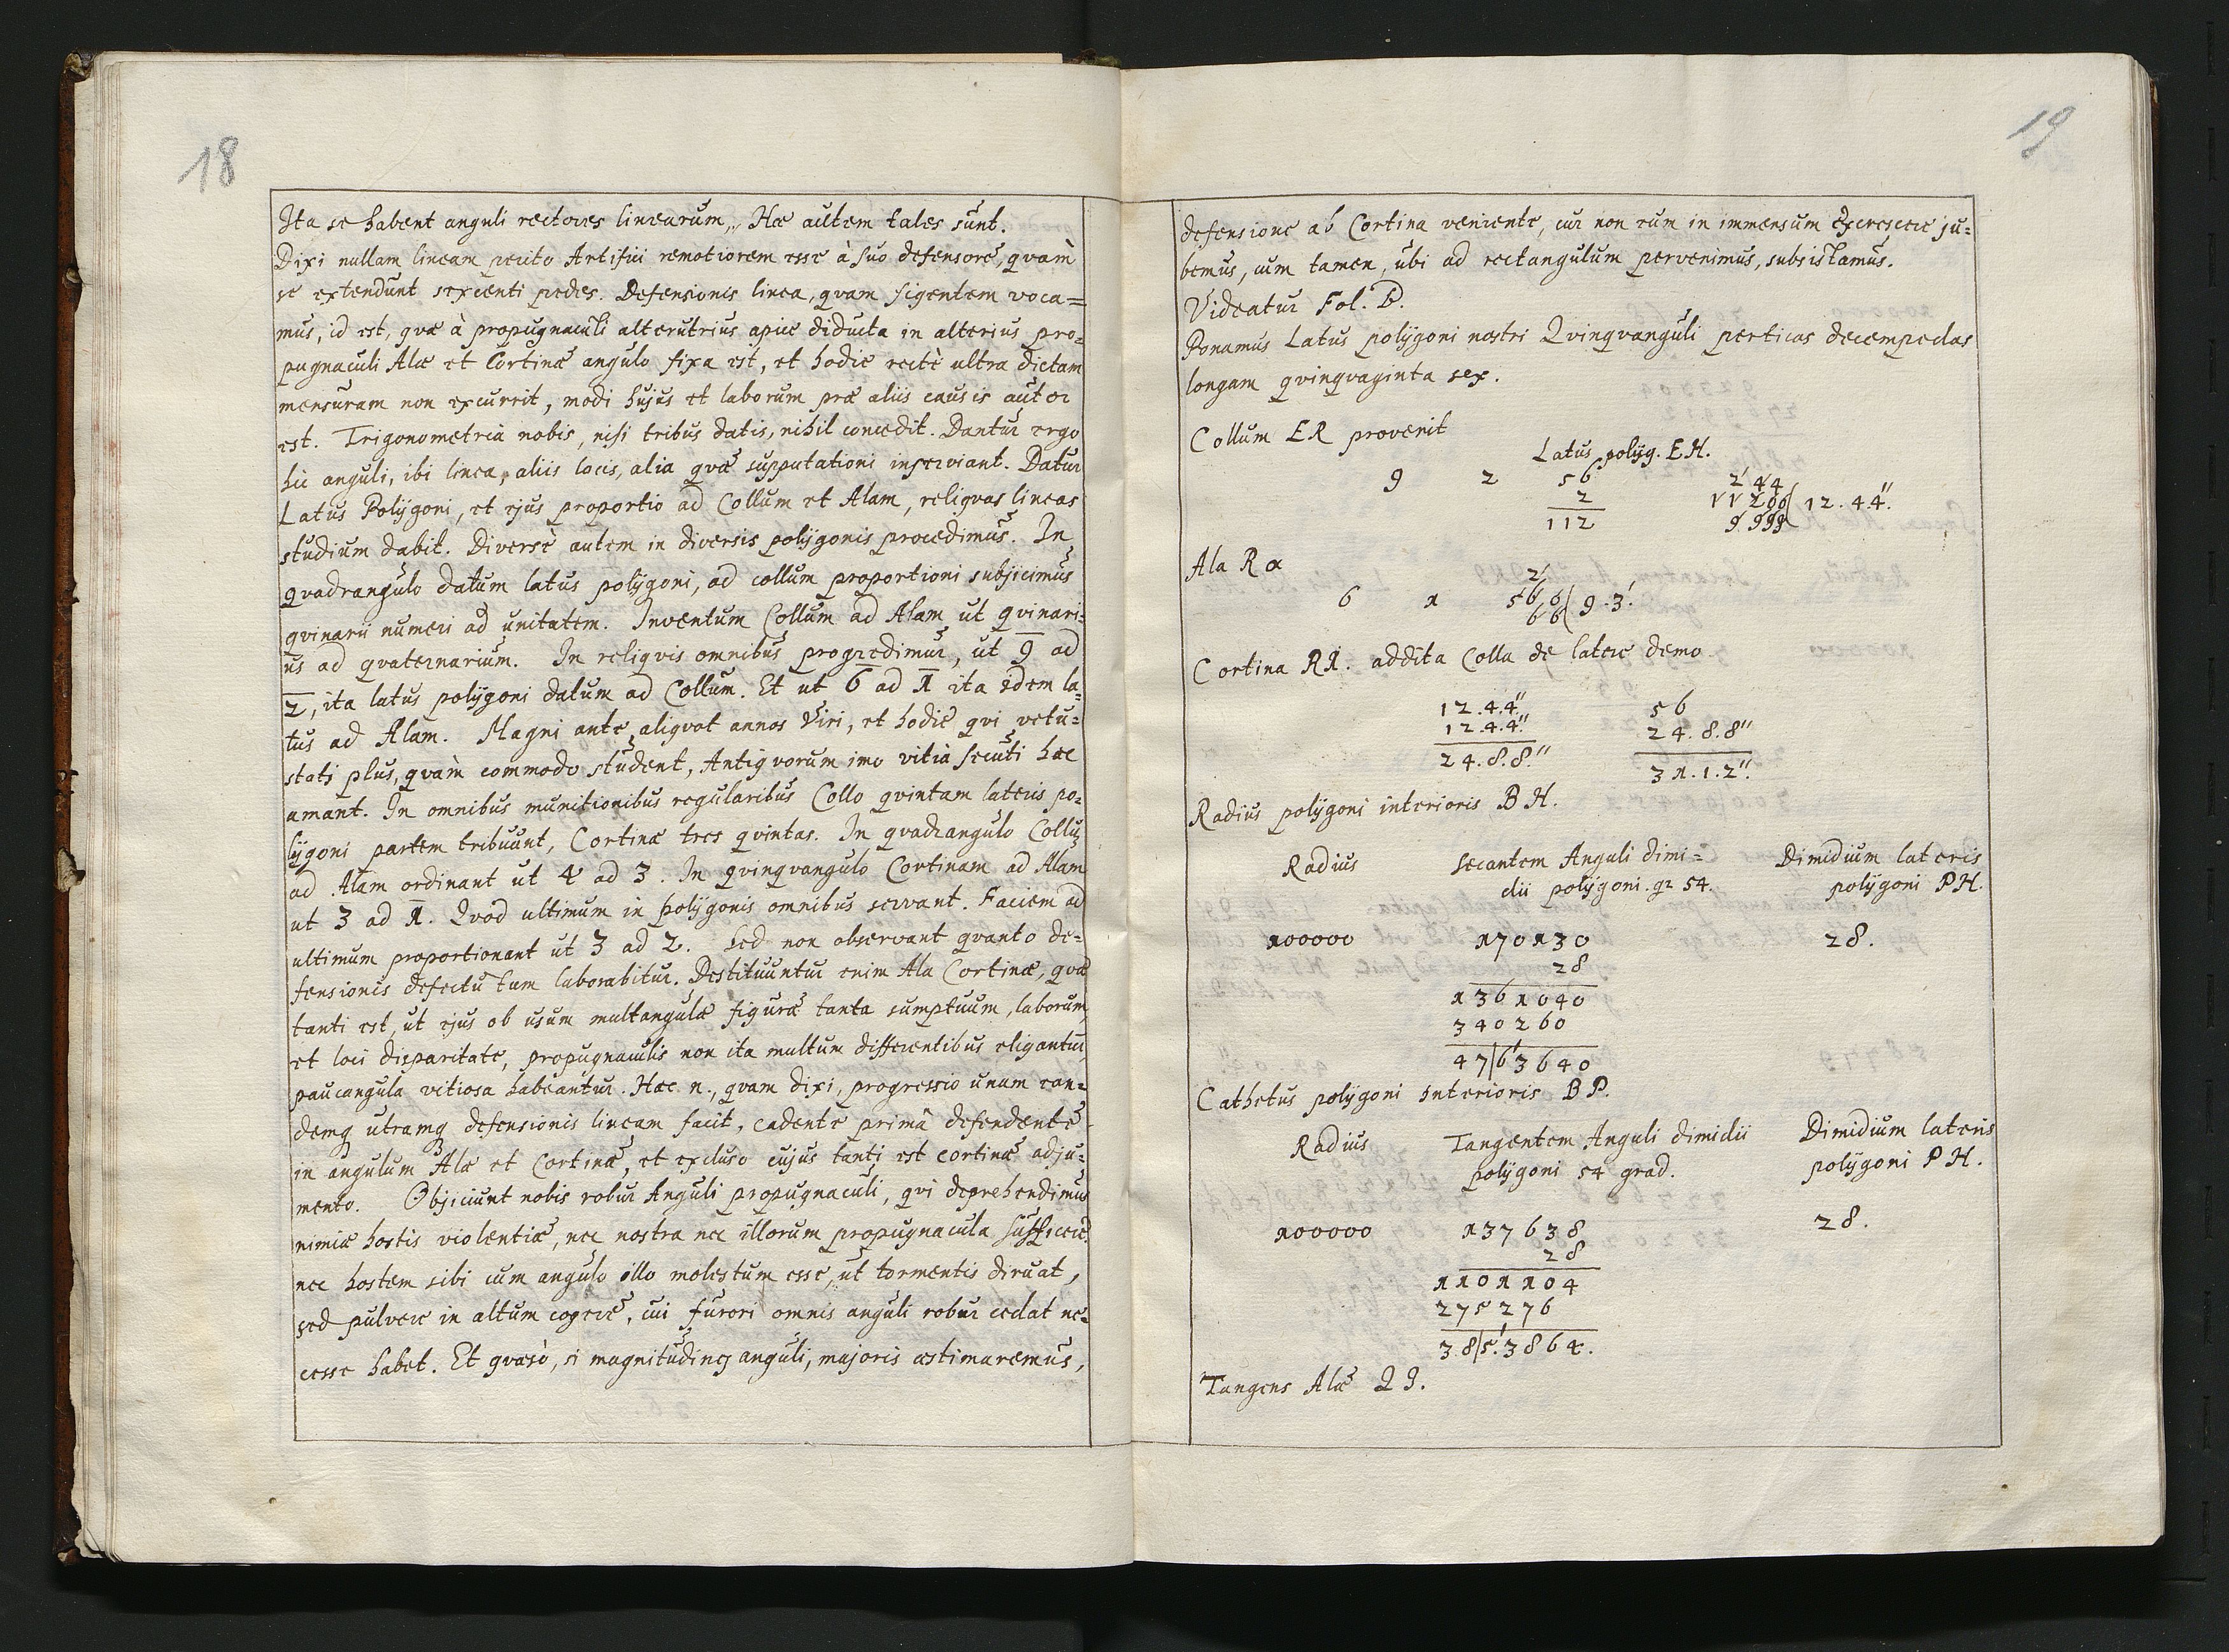 18
Ita se habent anguli rectores linearum,, Hæ autem tales sunt.
Dixi nullam lineam perito Artifici remotiorem esse à suo defensore, qvàm
se extendunt sexcenti pedes. Defensionis linea, qvam figentem voca=
mus, id est, qvæ à propugnaculi alterutrius apice diducta in alterius pro=
pugnaculi Alæ et Cortinæ angulo fixa est, et hodie rectè ultra dictam
mensuram non excurrit, modi hujus et laborum præ aliis causis autor
est. Trigonometria nobis, nisi tribus datis, nihil concedit. Dantur ergo
hic anguli, ibi linea, aliis locis, alia qvæ supputationi inserviant. Datur
Latus Polÿgoni, et ejus proportio ad Collum et Alam, reliqvas lineas
studium dabit. Diversè autem in diversis polÿgonis procedimus. In
qvadrangulo datum latus polÿgoni, ad collum proportioni subjicimus
qvinarii numeri ad unitatem. Inventum Collum ad Alam ut qvinari=
us ad qvaternarium. In reliqvis omnibus progredimur, ut 9 ad
2, ita latus polÿgoni datum ad Collum. Et ut 6 ad 1 ita idem la=
tus ad Alam. Magni ante aliqvot annos Viri, et hodie qvi vetu=
stati plus, qvàm commodo student, Antiqvorum imo vitia secuti hæc
amant. In omnibus munitionibus regularibus Collo qvintam lateris po=
lÿgoni partem tribuunt, Cortinæ tres qvintas. In qvadrangulo Collũ
ad Alam ordinant ut 4 ad 3. In qvinqvangulo Cortinam ad Alam
ut 3 ad 1. Qvod ultimum in polÿgonis omnibus servant. Faciem ad
ultimum proportionant ut 3 ad 2. Sed non observant qvanto de=
fensionis defectu tum laborabitur. Destituuntur enim Ala Cortinæ, qvæ
tanti est, ut ejus ob usum multangulæ figuræ tanta sumptuum, laborum,
et loci disparitate, propugnaculis non ita multum differentibus eligantur,
paucangula vitiosa habeantur. Hæc n., qvam dixi, progressio unam ean=
demq utramq defensionis lineam facit, cadente primâ defendente
in angulum Alæ et Cortinæ, et excluso cujus tanti est cortinæ adju=
mento. Objiciunt nobis robur Anguli propugnaculi, qvi deprehendimus
nimiæ hostis violentiæ, nec nostra nec illorum propugnacula sufficere
nec hostem sibi cum angulo illo molestum esse, ut tormentis diruat,
sed pulvere in altum cogere, cui furori omnis anguli robur cedat ne=
cesse habet. Et qvæsò, si magnitudines anguli, majoris æstimaremus,
19
defensione ab Cortina veniente, cur non eum in immensum excrescere ju=
bemus, cum tamen, ubi ad rectangulum pervenimus, subsistamus.
Videatur Fol. D.
Ponamus Latus polÿgoni nostri Qvinqvanguli perticas decempedas
longam qvinqvaginta sex.
Collum ER provenit
Latus polÿg. EH.
9 2 56 244
2 11200( 12.4.4''.
112 9.999
Ala R α
2
6 1 56,0( 9.3'.
66
Cortina RX. addita Colla de latere demo.
12.4.4'' 56
12.4.4'' 24.8.8''
24.8.8'' 31.1.2''.
Radius polÿgoni interioris BH.
Radius Secantem Anguli dimi= Dimidium lateris
dii polÿgoni. gr 54. polÿgoni PH.
100000 170130 28.
28
1361040
340260
47|6'3640
Cathetus polÿgoni interioris BP.
Radius Tangentem Anguli dimidii Dimidium lateris
polÿgoni 54 grad. polÿgoni PH.
100000 137638 28.
28
1101104
275276
38|5'.3864.
Tangens Alæ QI.